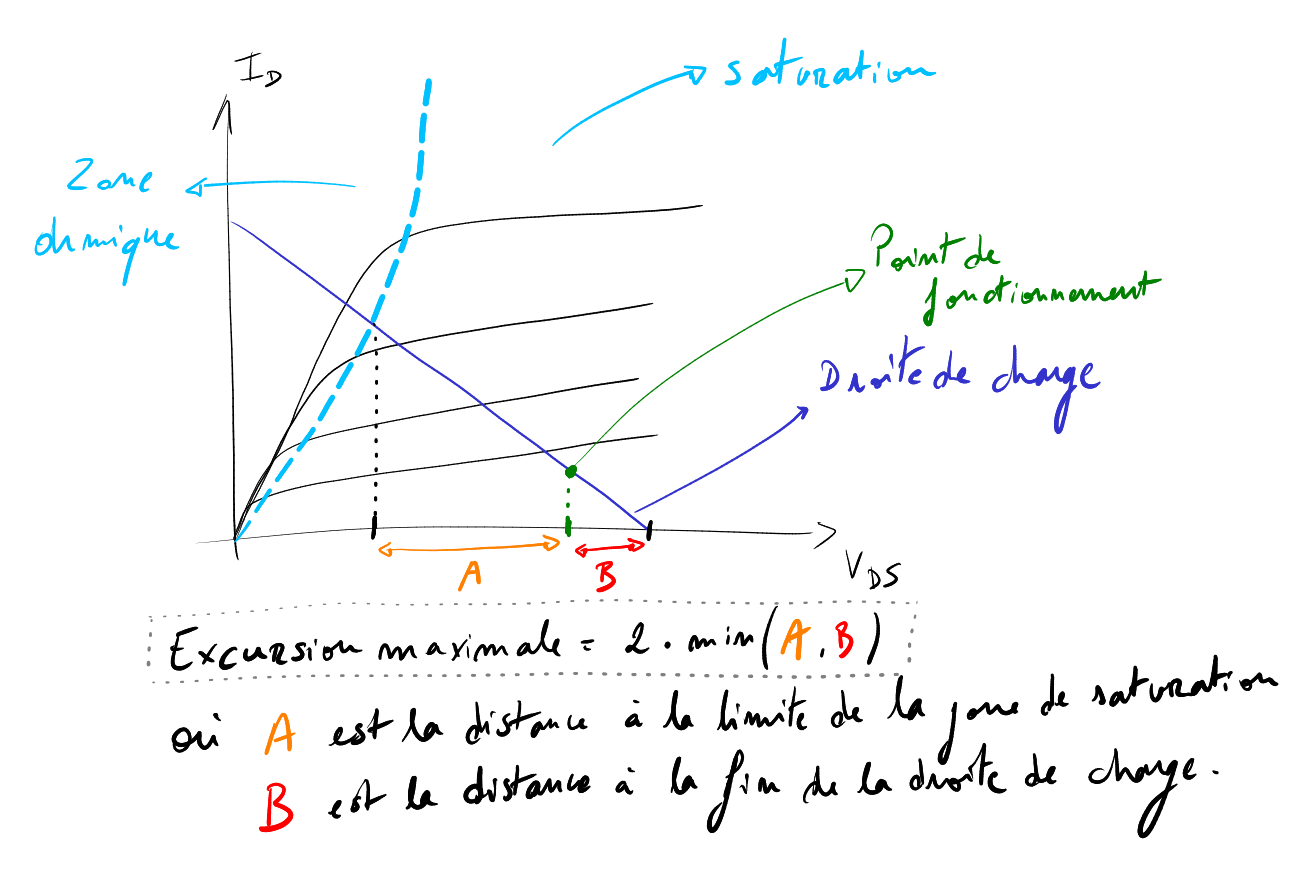 I_D
saturation
Zone
ohmique
Point de
fonctionnement
Droite de charge
A
B
V_DS
Excursion maximale = 2 . min(A, B)
où A est la distance à la limite de la zone de saturation
B est la distance à la fin de la droite de charge.